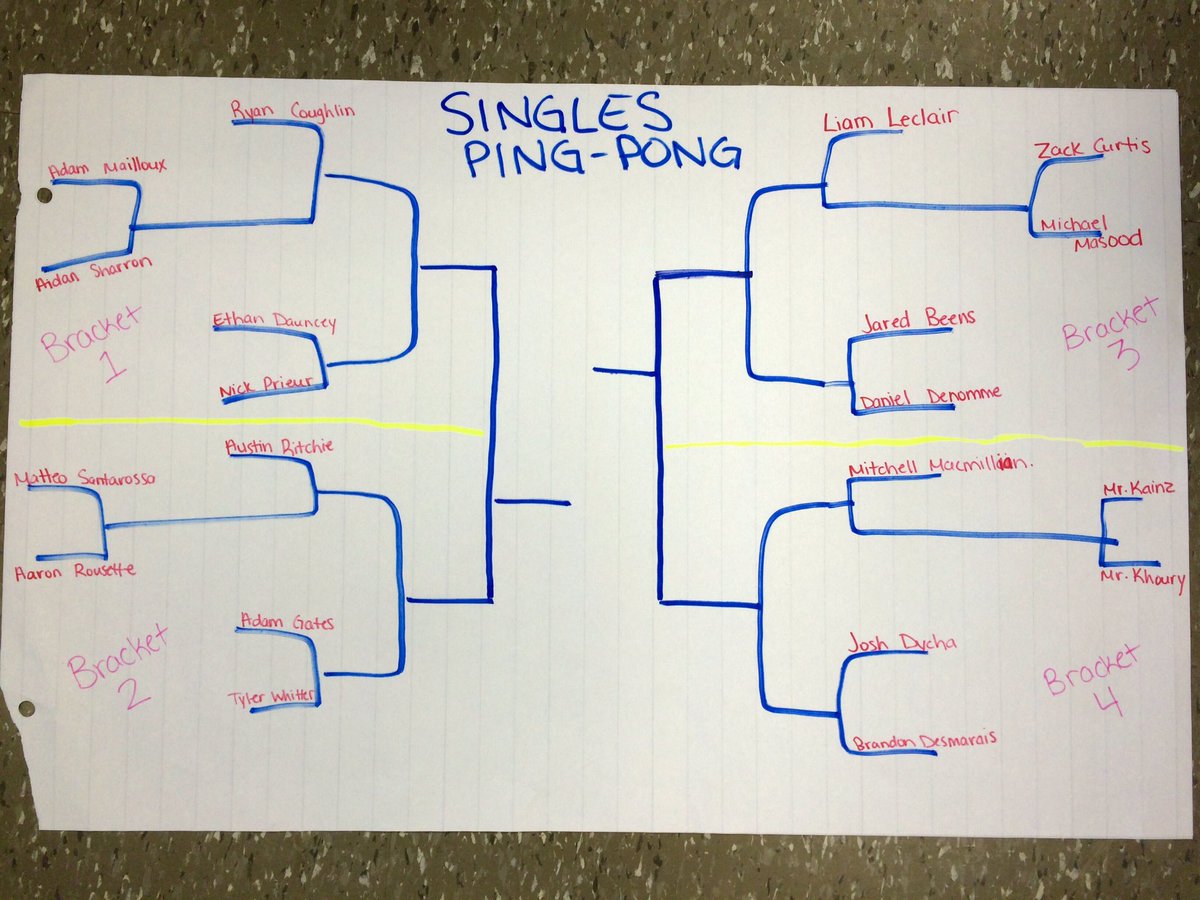 SINGLES
PING-PONG
Ryan Coughlin
Adam Mailloux
Aidan Sharron
Ethan Dauncey
Nick Prieur
Bracket
1
Austin Ritchie
Matteo Santarossa
Aaron Rousette
Adam Gates
Tyler Whitter
Bracket
2
Liam Leclair
Zack Curtis
Michael
Masood
Jared Beens
Daniel Denomme
Bracket
3
Mitchell Macmillian.
Mr. Kainz
Mr. Khoury
Josh Dycha
Brandon Desmarais
Bracket
4